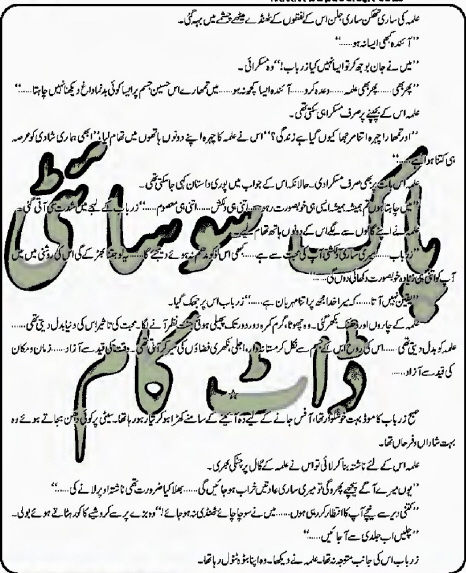 علمہ کی ساری تھکن ساری جلن اس کے لفظوں کے ٹھنڈے میٹھے چشمے میں بہہ گئی۔
’’آئندہ کبھی ایسا نہ ہو......‘‘
’’میں نے جان بوجھ کر تو ایسا نہیں کیا زرباب!‘‘ وہ مسکرائی۔
’’پھر بھی...... پھر بھی علمہ...... وعدہ کرو...... آئندہ ایسا کچھ نہ ہو...... میں تمھارے اس حسین جسم پر ایسا کوئی بدنما داغ دیکھنا نہیں چاہتا......‘‘
اس کے بھیجنے پر صرف مسکرا ہی سکتی تھی۔
’’اور تمھارا چہرہ اتنا مرجھا کیوں گیا ہے زندگی؟‘‘ اس نے علمہ کا چہرہ اپنے دونوں ہاتھوں میں تھام لیا۔ ’’ابھی ہماری شادی کو عرصہ
ہی کتنا ہوا ہے......‘‘
علمہ اس بات پر بھی صرف مسکرا دی۔ حالانکہ اس کے جواب میں پوری داستان کہی جا سکتی تھی۔
’’میں چاہتا ہوں تم ہمیشہ ہمیشہ ایسی ہی خوبصورت رہو...... اتنی ہی دلکش...... اتنی ہی معصوم......‘‘ زرباب کے لہجے میں شدت سی آتی گئی۔
علمہ نے اپنے گالوں سے لگے اس کے دونوں ہاتھ تھام لیے۔
’’زرباب...... میری ساری دلکشی آپ کی محبت سے ہے...... کبھی اس کو مدھم نہ ہونے دیجئے گا...... یہ لو جتنا بھڑکے گی اس کی روشنی میں میں
آپ کو اتنی ہی زیادہ خوبصورت دکھائی دوں گی......‘‘
’’یقین نہیں آتا...... کہ میرا خدا مجھ پر اتنا مہربان ہے......‘‘ زرباب اس پر جھک گیا۔
علمہ کے چاروں اور دھنک بکھر گئی۔ وہ چھوٹا، گرم کمرہ دور دور تک پھیلی ہوئی جنت نظر آنے لگا۔ محبت کی تاثیر اس کی دنیا بدل دیتی تھی......
علمہ کو بدل دیتی تھی...... اس کی روح اس کے جسم سے نکل کر مستانہ وار، اجلی، نکھری فضاؤں کی سیر کر آتی تھی...... وقت کی قید سے آزاد...... زمان و مکان
کی قید سے آزاد......
☆
صبح زرباب کا موڈ بہت خوشگوار تھا، آفس جانے کے لیے وہ آئینے کے سامنے کھڑا ہو کر تیار ہو رہا تھا۔ سیٹی پر کوئی دھن بجاتے ہوئے وہ
بہت شاداں و فرحاں تھا۔
علمہ اس کے لئے ناشتہ بنا کر لائی تو اس نے علمہ کے گال پر چٹکی بھری۔
’’یوں میرے آگے پیچھے پھرو گی تو میری ساری عادتیں خراب ہو جائیں گی...... بھلا کیا ضرورت تھی ناشتہ اوپر لانے کی......‘‘
’’کتنی دیر سے نیچے آپ کا انتظار کر رہی ہوں...... میں نے سوچا چائے ٹھنڈی نہ ہو جائے!‘‘ وہ بڑے پر سے کروشیے کا کور ہٹاتے ہوئے بولی۔
’’چلیں اب جلدی سے آ جائیں......‘‘
زرباب اس کی جانب متوجہ نہ تھا۔ علمہ نے دیکھا۔ وہ اپنا بٹوہ ٹٹول رہا تھا۔
پاک سوسائٹی
ڈاٹ کام